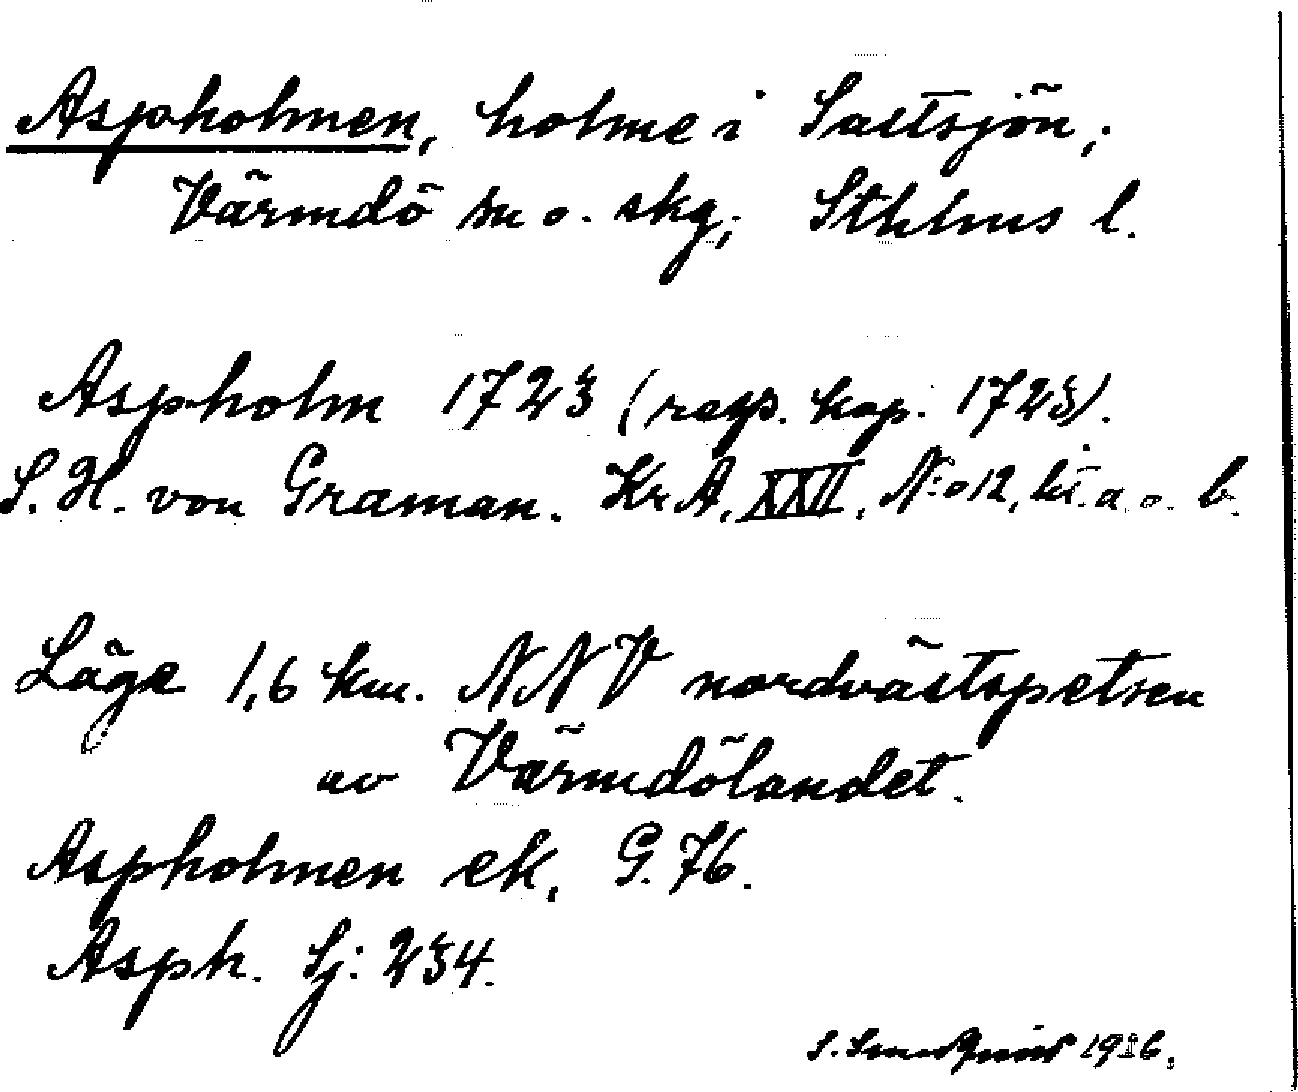 Aspholmen, holme i Saltsjön,
Värmdö sn o. skg, Sthlms l.
Aspholm 1723 (resp. kop. 1723).
S. H. von Graman. Kr A, XXII, N:o 12, lit. a o. b.
Läge 1,6 km. NNV nordvästspetsen
av Värmdölandet.
Aspholmen ek. G. 76.
Asph. Sj: 234.
S. 1936.